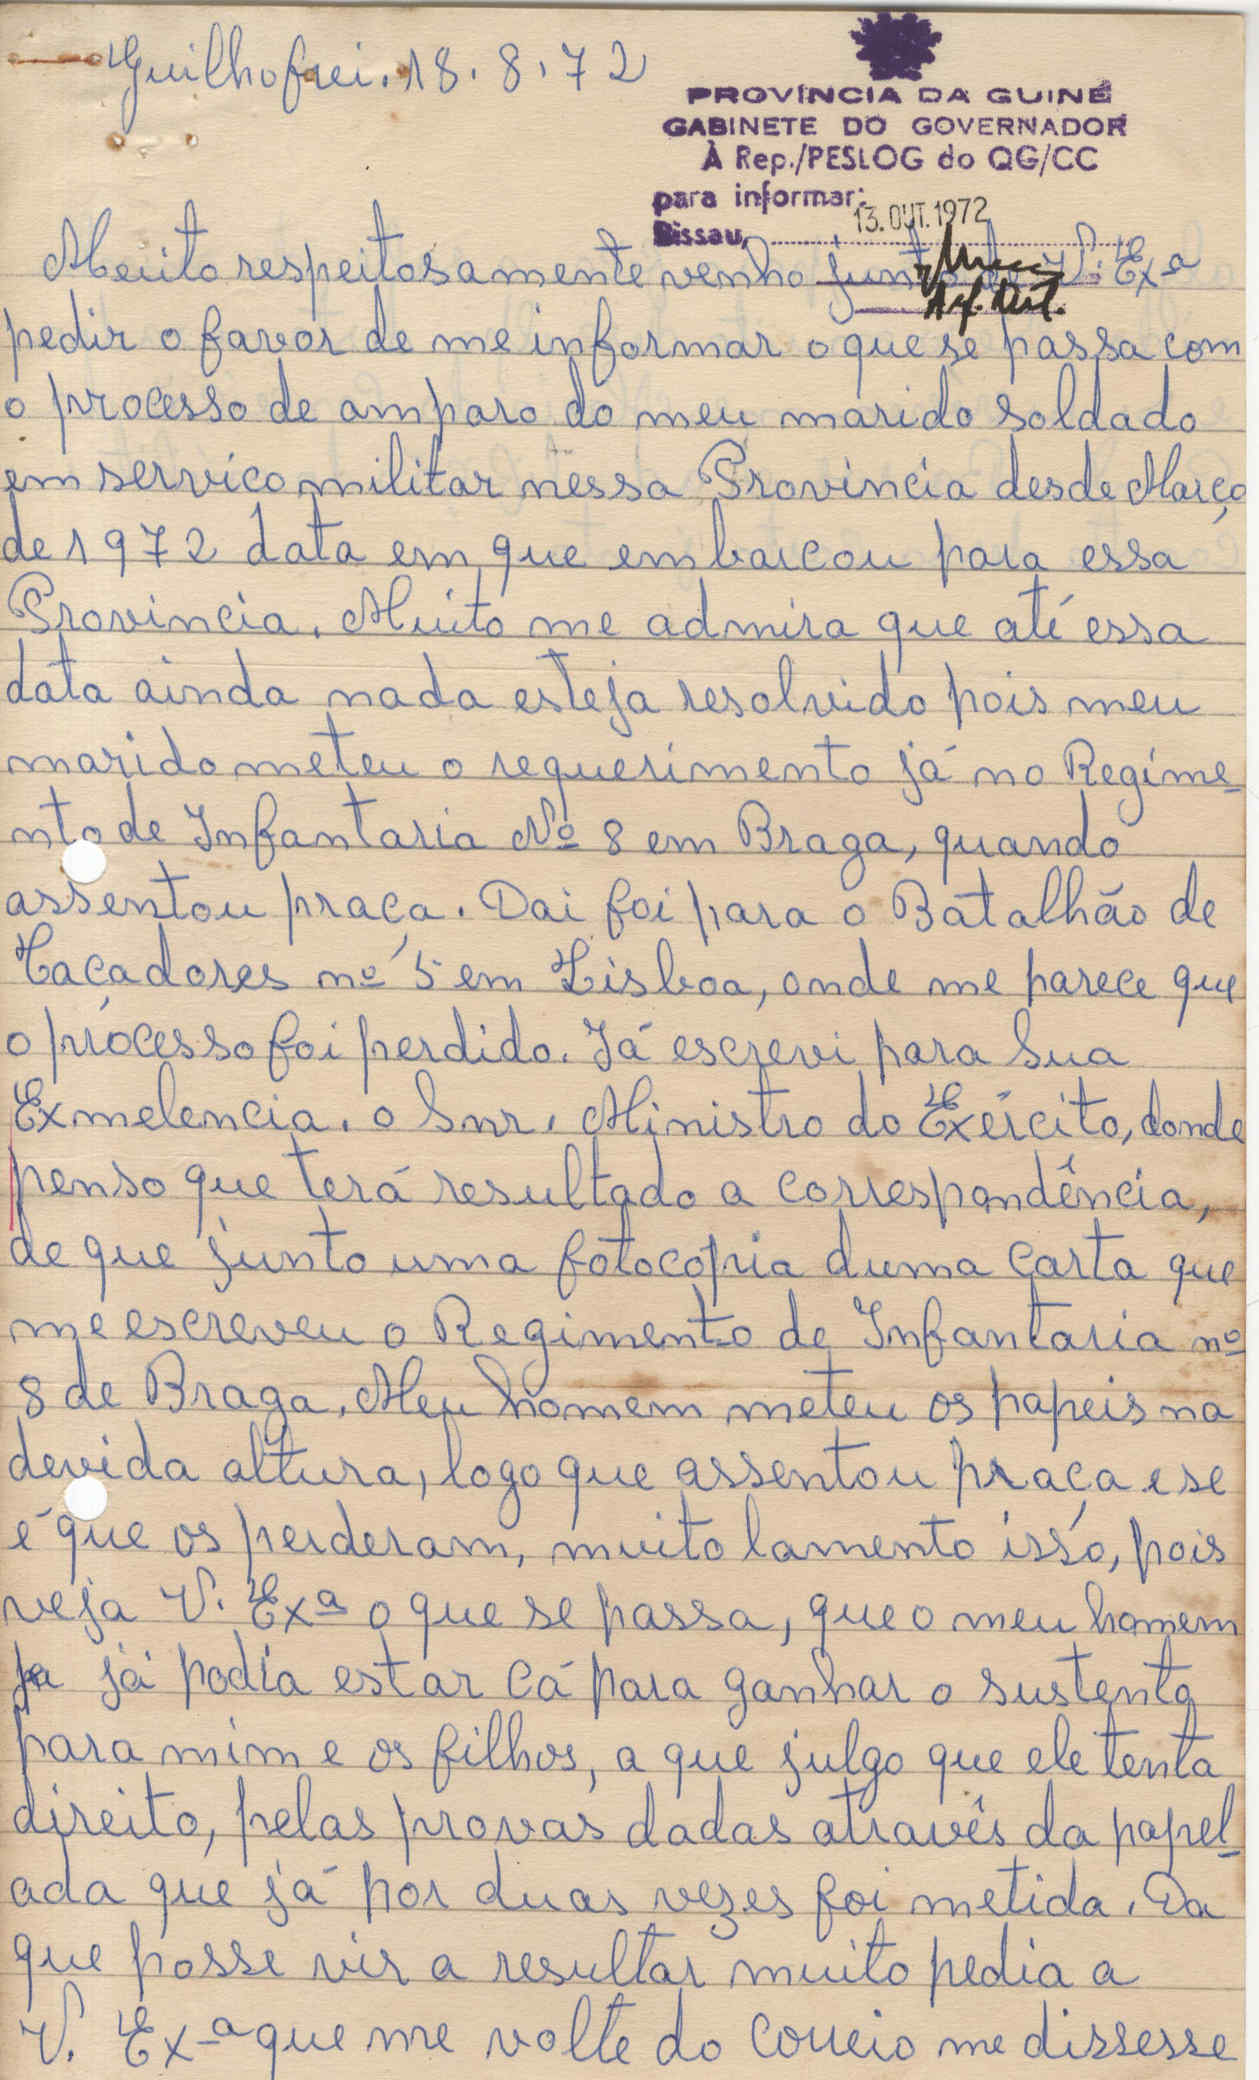 Guilhofrei. 18. 8. 72
PROVÍNCIA DA GUINÉ
GABINETE DO GOVERNADOR
À Rep./PESLOG do QG/CC
para informar:
Bissau, 13. OUT. 1972
Muito respeitosamente venho junto de V. Exª
pedir o favor de me informar o que se passa com
o processo de amparo do meu marido soldado
em serviço militar nessa Provincia desde Março
de 1972 data em que embarcou para essa
Provincia. Muito me admira que até essa
data ainda nada esteja resolvido pois meu
marido meteu o requerimento já no Regime-
nto de Infantaria Nº 8 em Braga, quando
assentou praça. Dai foi para o Batalhão de
Caçadores nº 5 em Lisboa, onde me parece que
o processo foi perdido. Já escrevi para Sua
Exmelencia. o Snr. Ministro do Exército, donde
penso que terá resultado a correspondência,
de que junto uma fotocopia duma carta que
me escreveu o Regimento de Infantaria nº
8 de Braga. Meu homem meteu os papeis na
devida altura, logo que assentou praça e se
é que os perderam, muito lamento isso, pois
veja V. Exª o que se passa, que o meu homem
já podia estar cá para ganhar o sustento
para mim e os filhos, a que julgo que ele tenta
direito, pelas provas dadas atravês da papel-
ada que já por duas vezes foi metida. Da
que posse vir a resultar muito pedia a
V. Exª que me volte do correio me dissesse